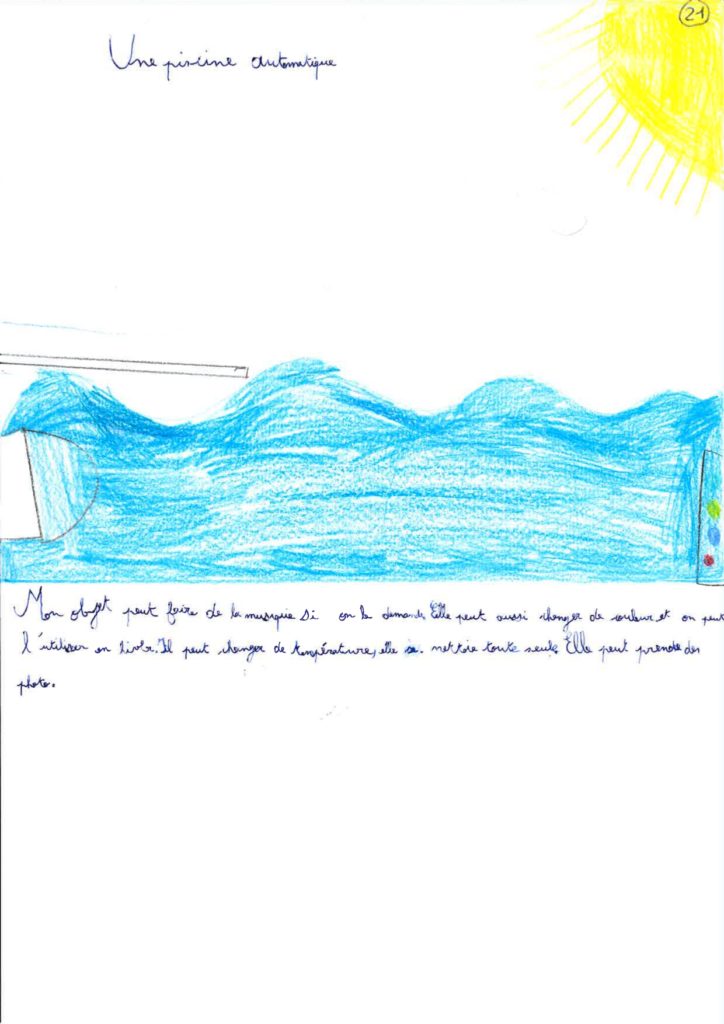 21
Une piscine automatique
Mon objet peut faire de la musique si on le demande. Elle peut aussi changer de couleur et on peut
l'utiliser en hiver. Il peut changer de température, elle se nettoie toute seule. Elle peut prendre des
photo.